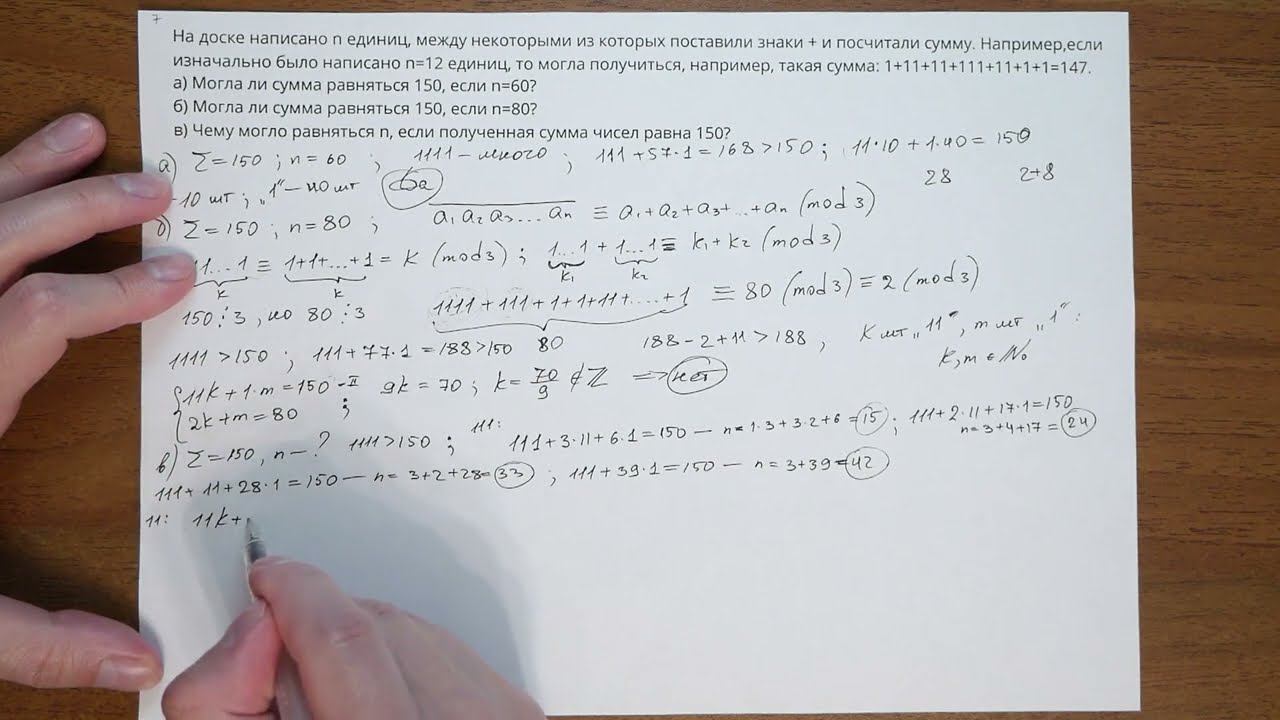 7
На доске написано n единиц, между некоторыми из которых поставили знаки + и посчитали сумму. Например,если
изначально было написано n=12 единиц, то могла получиться, например, такая сумма: 1+11+11+111+11+1+1=147.
а) Могла ли сумма равняться 150, если n=60?
б) Могла ли сумма равняться 150, если n=80?
в) Чему могло равняться n, если полученная сумма чисел равна 150?
а) Σ=150 ; n=60 ; 1111 – много ; 111+57·1=168>150 ; 11·10+1·40=150
-10 шт ; „1“-40 шт Да 28 2+8
б) Σ=150 ; n=80 ; a₁a₂a₃...aₙ ≡ a₁+a₂+a₃+...+aₙ (mod 3)
1...1 ≡ 1+1+...+1 = k (mod 3) ; 1...1 + 1...1 ≡ k₁+k₂ (mod 3)
k k k₁ k₂
150⋮3, но 80⋮3 1111+111+1+1+11+...+1 ≡ 80 (mod 3) ≡ 2 (mod 3)
80
1111>150 ; 111+77·1=188>150 188-2+11>188 , k шт „11“, m шт „1“:
k,m∈N₀
11k+1·m=150 -II 9k=70 ; k=70/9 ∉ Z ⇒ нет
2k+m=80 ;
в) Σ=150, n-? 1111>150 ; 111: 111+3·11+6·1=150 — n=1·3+3·2+6=15 ; 111+2·11+17·1=150
n=3+4+17=24
111+11+28·1=150 — n=3+2+28=33 ; 111+39·1=150 — n=3+39=42
11: 11k+